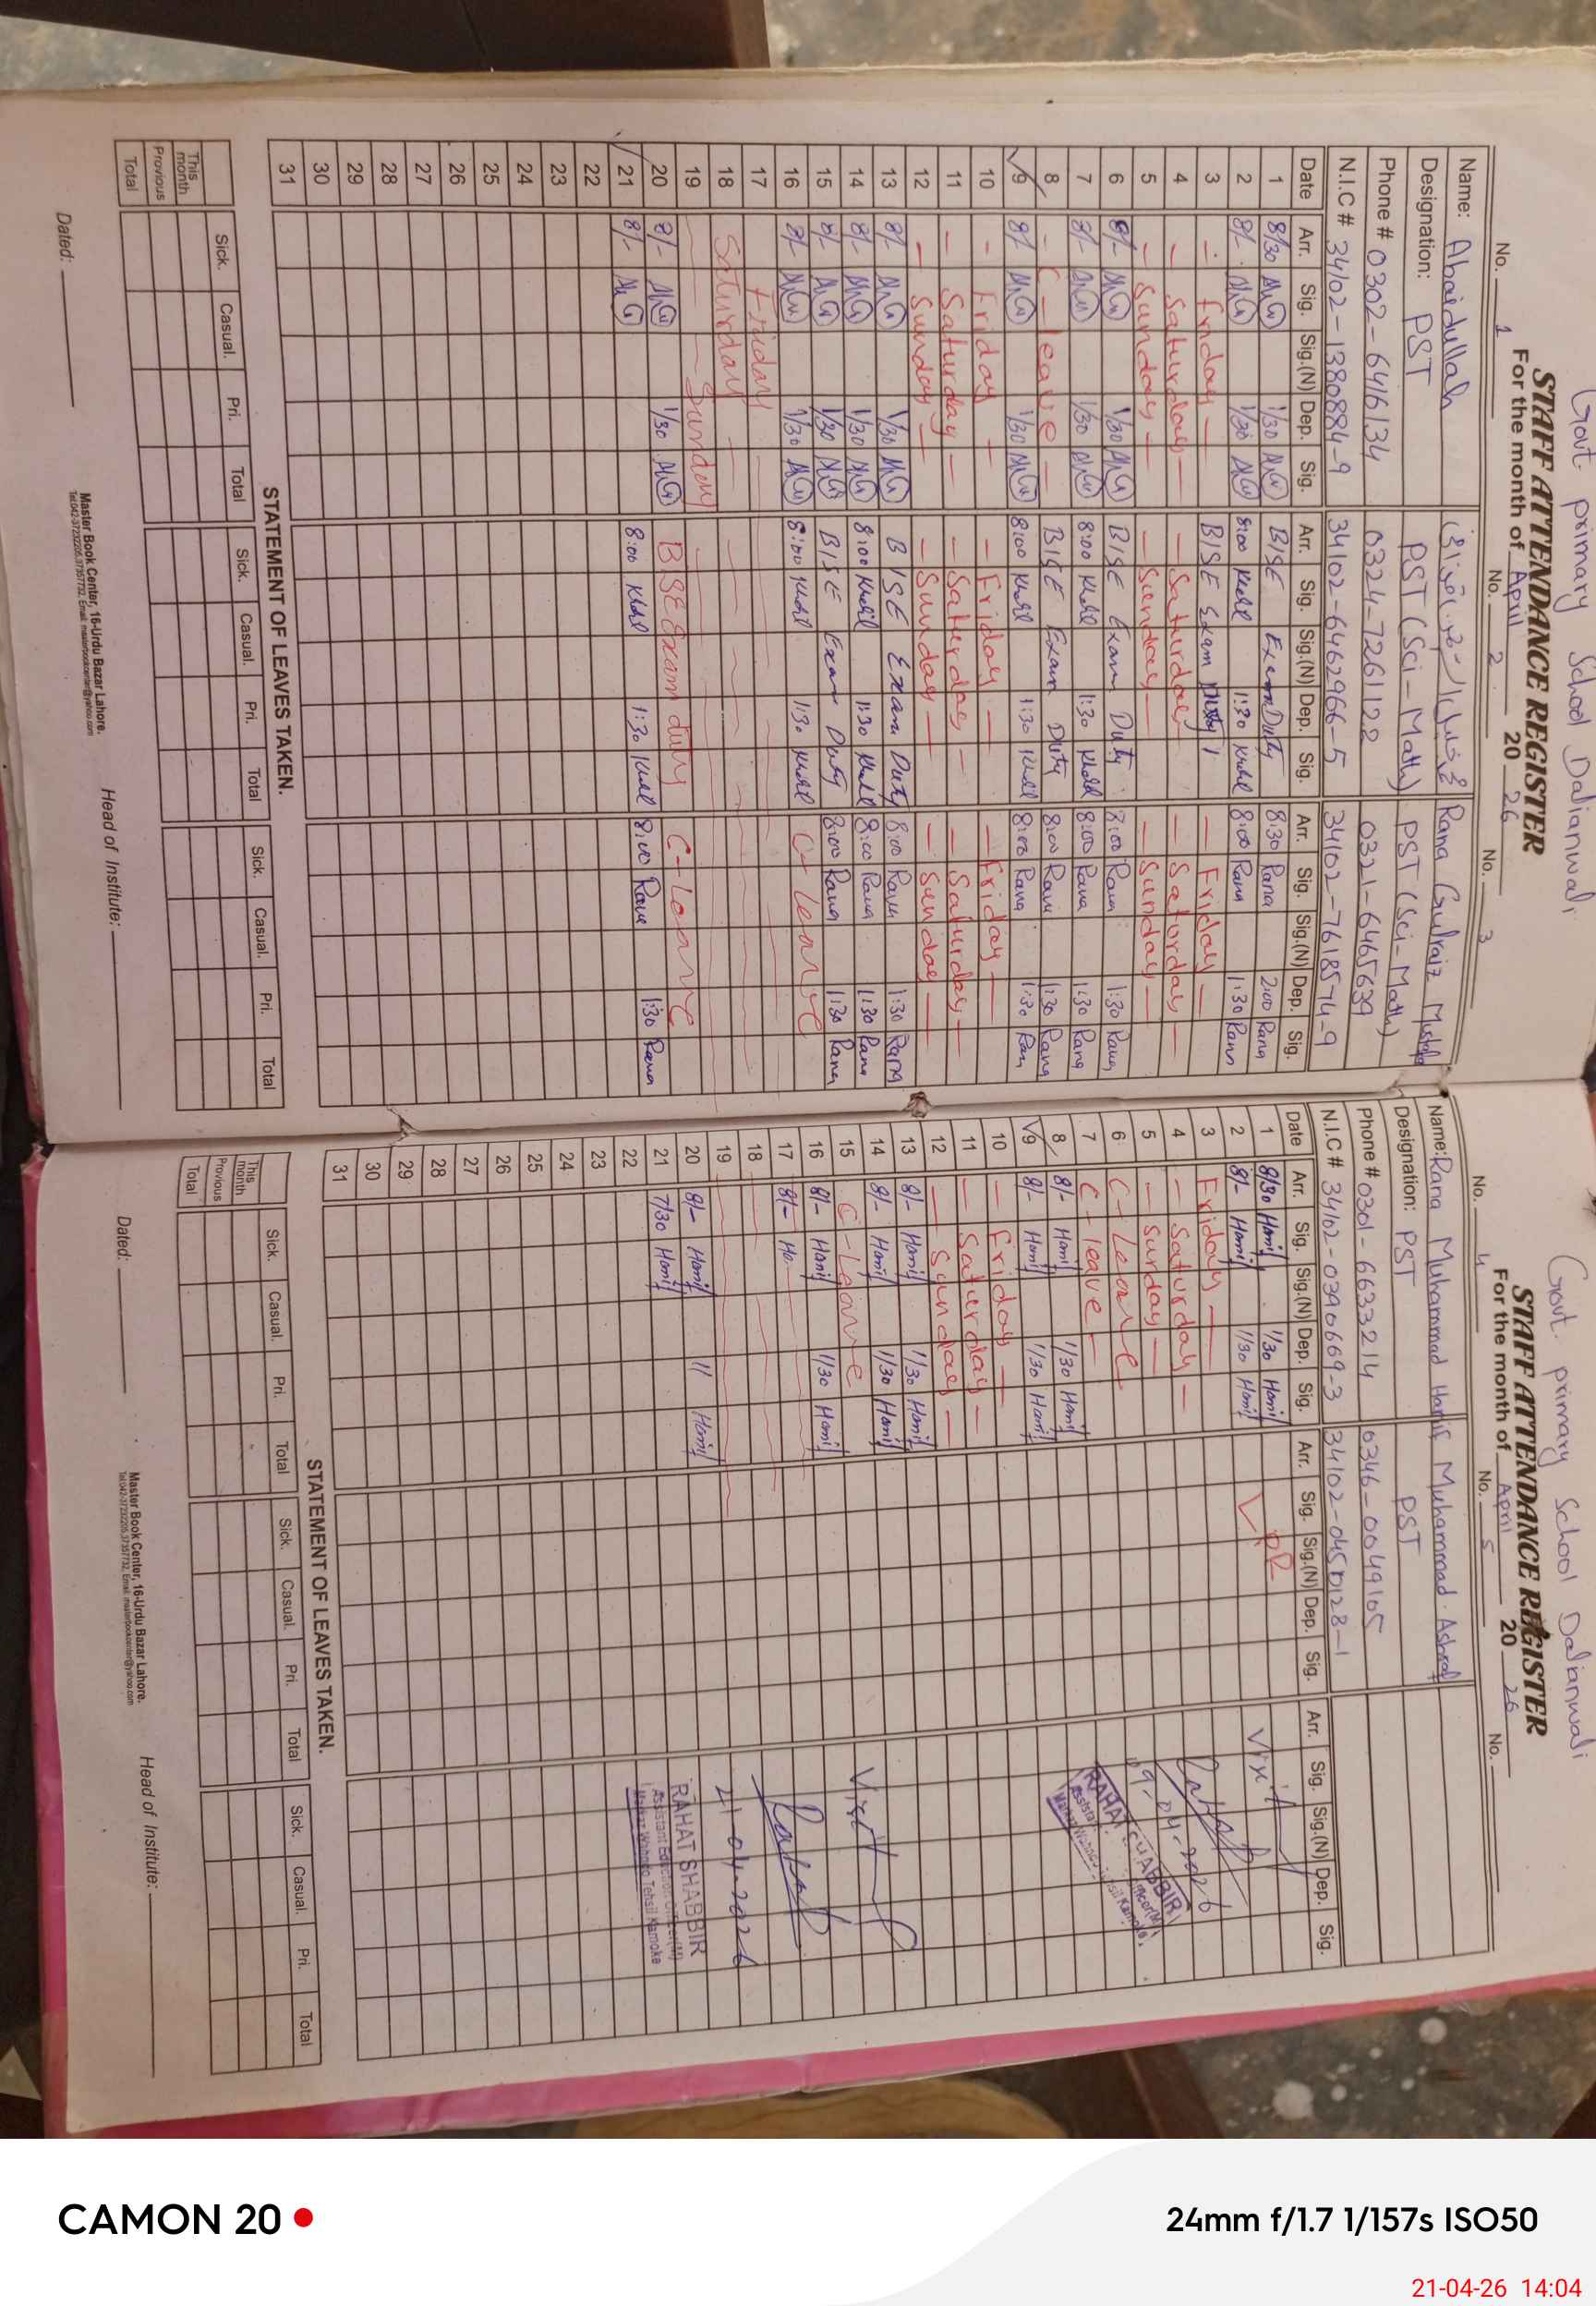 Govt. primary School Dalianwali
STAFF ATTENDANCE REGISTER
For the month of April 20 26
No. 1 No. 2 No. 3
Name: Abaidullah Rana Gulraiz Mustafa
Designation: PST PST (Sci-Math) PST (Sci-Math)
Phone # 0302-6416134 0324-7261122 0321-6465639
N.I.C # 34102-1380884-9 34102-6462966-5 34102-7618574-9
Date Arr. Sig. Sig.(N) Dep. Sig. Arr. Sig. Sig.(N) Dep. Sig. Arr. Sig. Sig.(N) Dep. Sig.
1 8/30 1/30 BISE Exam Duty 8:30 Rana 2:00 Rana
2 8/- 1/30 8:00 Khalil 1:30 Khalil 8:00 Rana 1:30 Rana
3 - Friday - BISE Exam Duty - Friday -
4 - Saturday - - Saturday - Saturday -
5 - Sunday - - Sunday - - Sunday -
6 8/- 1/30 BISE Exam Duty 8:00 Rana 1:30 Rana
7 8/- 1/30 8:00 Khalil 1:30 Khalil 8:00 Rana 1:30 Rana
8 - C-leave - BISE Exam Duty 8:00 Rana 1:30 Rana
9 8/- 1/30 8:00 Khalil 1:30 Khalil 8:00 Rana 1:30 Rana
10 - Friday - - Friday - - Friday -
11 - Saturday - - Saturday - - Saturday -
12 - Sunday - - Sunday - - Sunday -
13 8/- 1/30 BISE Exam Duty 8:00 Rana 1:30 Rana
14 8/- 1/30 8:00 Khalil 1:30 Khalil 8:00 Rana 1:30 Rana
15 8/- 1/30 BISE Exam Duty 8:00 Rana 1:30 Rana
16 8/- 1/30 8:00 Khalil 1:30 Khalil C-Leave
17 Friday
18 Saturday
19 Sunday
20 8/- 1/30 BISE Exam duty C-Leave
21 8/- 8:00 Khalil 1:30 Khalil 8:00 Rana 1:30 Rana
22
23
24
25
26
27
28
29
30
31
STATEMENT OF LEAVES TAKEN.
Sick. Casual. Pri. Total Sick. Casual. Pri. Total Sick. Casual. Pri. Total
This month
Previous
Total
Dated: Master Book Center, 16-Urdu Bazar Lahore. Head of Institute:
Govt. primary School Dalianwali
STAFF ATTENDANCE REGISTER
For the month of April 20 26
No. 4 No. 5 No.
Name: Rana Muhammad Hanif Muhammad Ashraf
Designation: PST PST
Phone # 0301-6633214 0346-0049105
N.I.C # 34102-0390669-3 34102-0450128-1
Date Arr. Sig. Sig.(N) Dep. Sig. Arr. Sig. Sig.(N) Dep. Sig. Arr. Sig. Sig.(N) Dep. Sig.
1 8/30 Hanif 1/30 Hanif
2 8/- Hanif 1/30 Hanif Visit
3 Friday -
4 - Saturday -
5 - Sunday - 09-04-2026
6 C-Leave
7 C-leave - RAHAT SHABBIR
8 8/- Hanif 1/30 Hanif
9 8/- Hanif 1/30 Hanif
10 - Friday -
11 - Saturday -
12 - Sunday -
13 8/- Hanif 1/30 Hanif
14 8/- Hanif 1/30 Hanif
15 C-Leave Visit
16 8/- Hanif 1/30 Hanif
17 8/- Ha
18
19 21-04-2026
20 8/- Hanif 11 Hanif RAHAT SHABBIR
21 7/30 Hanif Assistant Education Officer(M)
Markaz Wahndo Tehsil Kamoke
22
23
24
25
26
27
28
29
30
31
STATEMENT OF LEAVES TAKEN.
Sick. Casual. Pri. Total Sick. Casual. Pri. Total Sick. Casual. Pri. Total
This month
Previous
Total
Dated: Master Book Center, 16-Urdu Bazar Lahore. Head of Institute:
CAMON 20 24mm f/1.7 1/157s ISO50
21-04-26 14:04